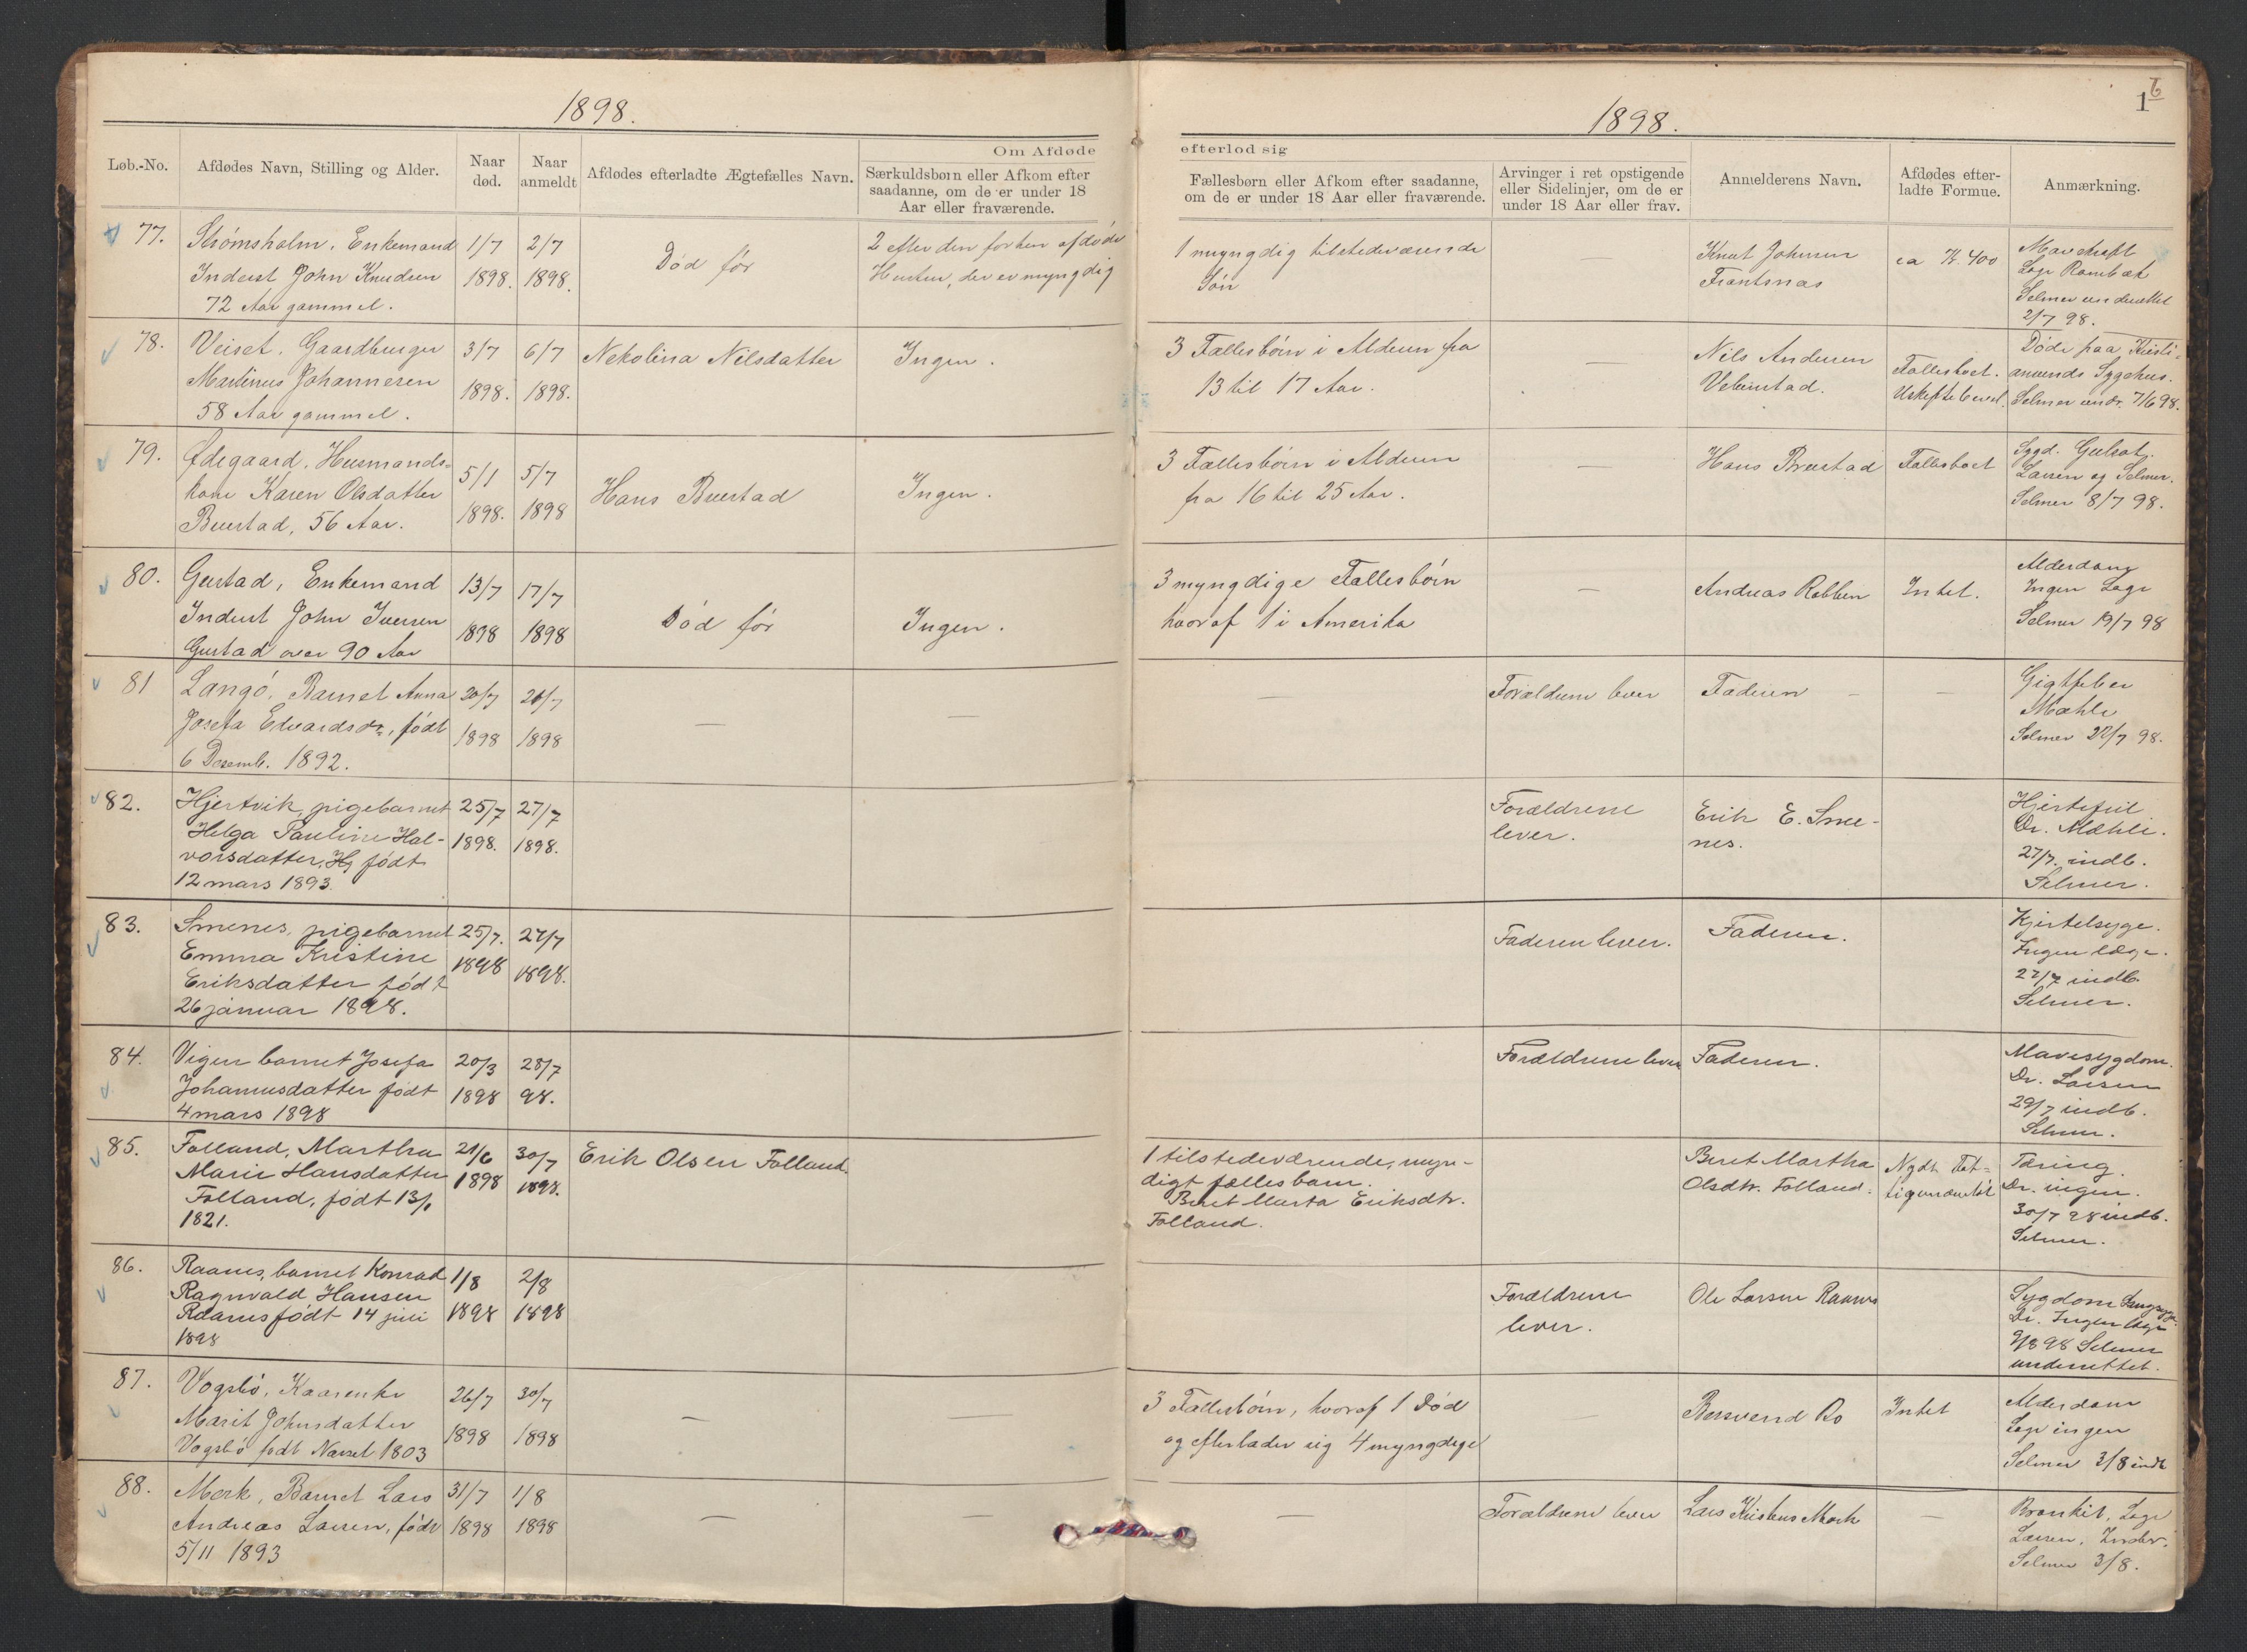 1898.
Om Afdøde
Løb.-No.
Afdødes Navn, Stilling og Alder.
Naar død.
Naar anmeldt
Afdødes efterladte Ægtefælles Navn.
Særkuldsbørn eller Afkom efter
saadanne, om de er under 18
Aar eller fraværende.
1898.
1 6
efterlod sig
Fællesbørn eller Afkom efter saadanne,
om de er under 18 Aar eller fraværende.
Arvinger i ret opstigende
eller Sidelinjer, om de er
under 18 Aar eller frav.
Anmelderens Navn.
Afdødes efter-
ladte Formue.
Anmærkning.
77.
Strömsholm, Enkemand
Inderst John Knudsen
72 Aar gammel.
1/7
1898.
2/7
1898.
Död før
2 efter den forhen afdøde
Hustru, der er myngdig
1 myngdig tilstedeværende
Sön
—
Knut Johnsen
Frantsnas
ca K. 400
Mavekræft
Læge Rambæk
Selmer underrettet
2/7 98.
78.
Veiset, Gaardbruger
Martinus Johannesen
58 Aar gammel.
3/7
1898.
6/7
1898.
Nekolina Nilsdatter
Ingen.
3 Fællesbörn i Alderen fra
13 til 17 Aar.
—
Nils Andersen
Fællesboet.
Uskiftebevil.
Døde paa Kristi-
ansunds Sygehus.
Selmer undr. 7/6 98.
79.
Ødegaard, Husmands-
kone Karen Olsdatter
Bustad, 56 Aar.
5/1
1898.
5/7
1898
Hans Bustad
Ingen.
3 Fællesbörn i Alderen
fra 16 til 25 Aar.
—
Hans Bustad
Fællesboet
Sygd. Gulsot.
Larsen og Selmer.
Selmer 8/7 98.
80.
Gustad, Enkemand
Inderst John Iversen
Gustad over 90 Aar
13/7
1898
17/7
1898
Död før
Ingen.
3 myngdige Fællesbörn
hvoraf 1 i Amerika
—
Andreas Robben
Intet.
Alderdom
Ingen Læge
Selmer 19/7 98
81
Langö, Barnet Anna
Josefa Edvardsdr., födt
6 Desemb. 1892.
20/7
1898
1898
—
—
—
Forældrene lever
Faderen
—
Gigtfeber
Mæhle
Selmer 22/7 98.
82.
Hjertvik, pigebarnet
Helga Pauline Hal-
vorsdatter, Hj født
12 mars 1893.
25/7
1898.
27/7
1898.
Forældrene
lever.
Erik E. Sme-
nes.
Hjertefeil
Dr. Mæhle.
27/7. indb.
Selmer.
83.
Smenes, pigebarnet
Emma Kristine
Eriksdatter født
26 januar 1898.
25/7.
1898
27/7
1898.
Faderen lever.
Faderen.
Kjertelsyge.
Ingen læge.
27/7 indb.
Selmer.
84.
Vigen barnet Josefa
Johannesdatter født
4 mars 1898
20/3
1898
28/7
98.
Forældrene lever
Faderen.
Mavesygdom.
Dr. Larsen
29/7 indb.
Selmer.
85.
Folland, Martha
Marie Hansdatter
Folland, født 13/6
1821.
21/6
1898
30/7
1898.
Erik Olsen Folland.
1 tilstedeværende, myn-
digt fællesbarn.
Beret Marta Eriksdtr.
Folland.
Beret Martha
Olsdtr. Folland.
Nydt Fat-
tigunderst.
Tæring.
Dr. ingen.
30/7 98 indb.
Selmer.
86.
Raanes, barnet Konrad
Ragnvald Hansen
Raanes født 14 juli
1898
1/8
1898
2/8
1898
Forældrene
lever.
Ole Larsen Raanes
Sygdom
Dr. Ingen læge
98 Selmer
underrettet.
87.
Vogsbö, Kaarenke
Marit Johnsdatter
Vogsbö født 1803
26/7
1898
30/7
1898
—
—
3 Fællesbörn, hvoraf 1 Död
og efterlader sig 4 myngdige
—
Bersvend Bo
Intet
Alderdom
Læge ingen
Selmer 3/8 indb
88.
Mork, Barnet Lars
Andreas Larsen, födt
5/11 1893
31/7
1898
1/8
1898
—
—
—
Forældrene lever
Lars Kristens Mork
—
Bronkit, Læge
Larsen.
Selmer 3/8.